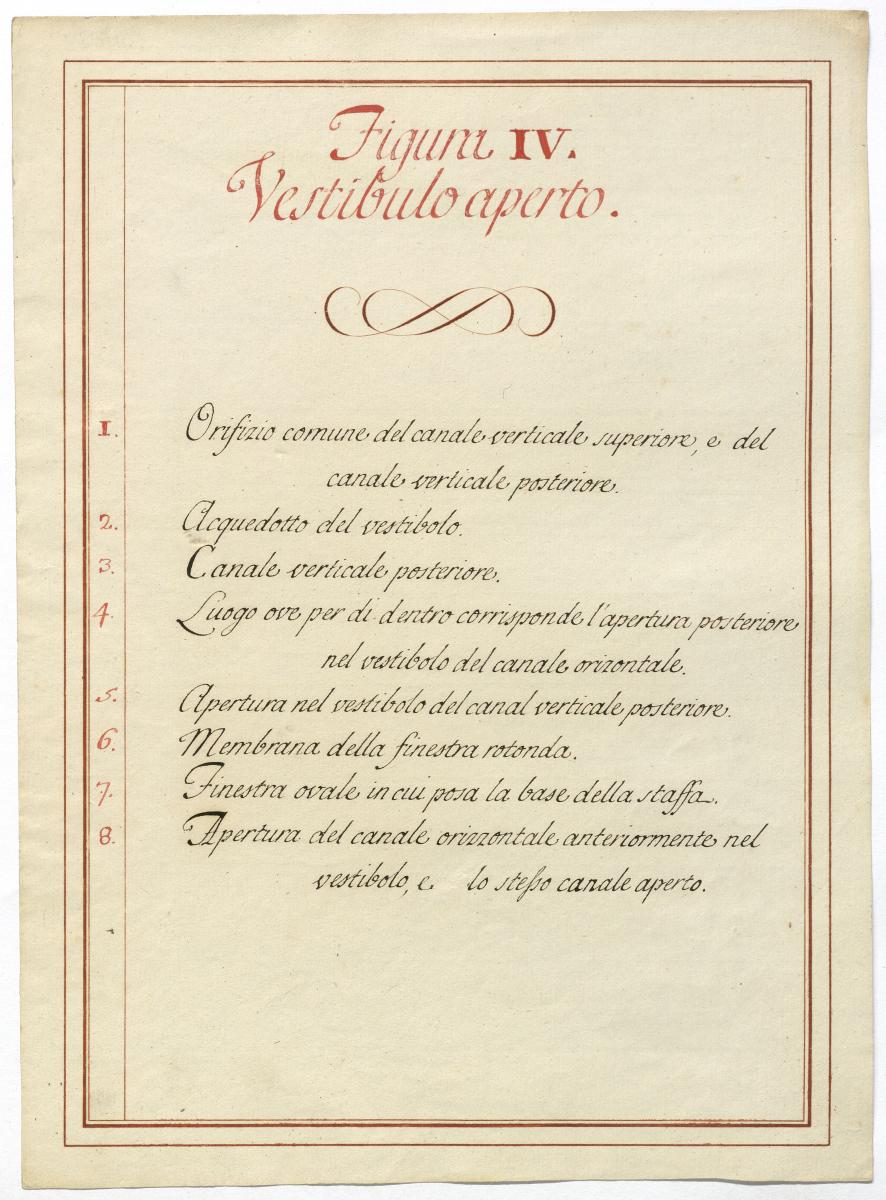 Figura IV.
Vestibulo aperto.
1. Orifizio comune del canale verticale superiore, e del
canale verticale posteriore.
2. Acquedotto del vestibolo.
3. Canale verticale posteriore.
4. Luogo ove per di dentro corrisponde l'apertura posteriore
nel vestibolo del canale orizontale.
5. Apertura nel vestibolo del canal verticale posteriore.
6. Membrana della finestra rotonda.
7. Finestra ovale in cui posa la base della staffa.
8. Apertura del canale orizzontale anteriormente nel
vestibolo, e lo steſso canale aperto.